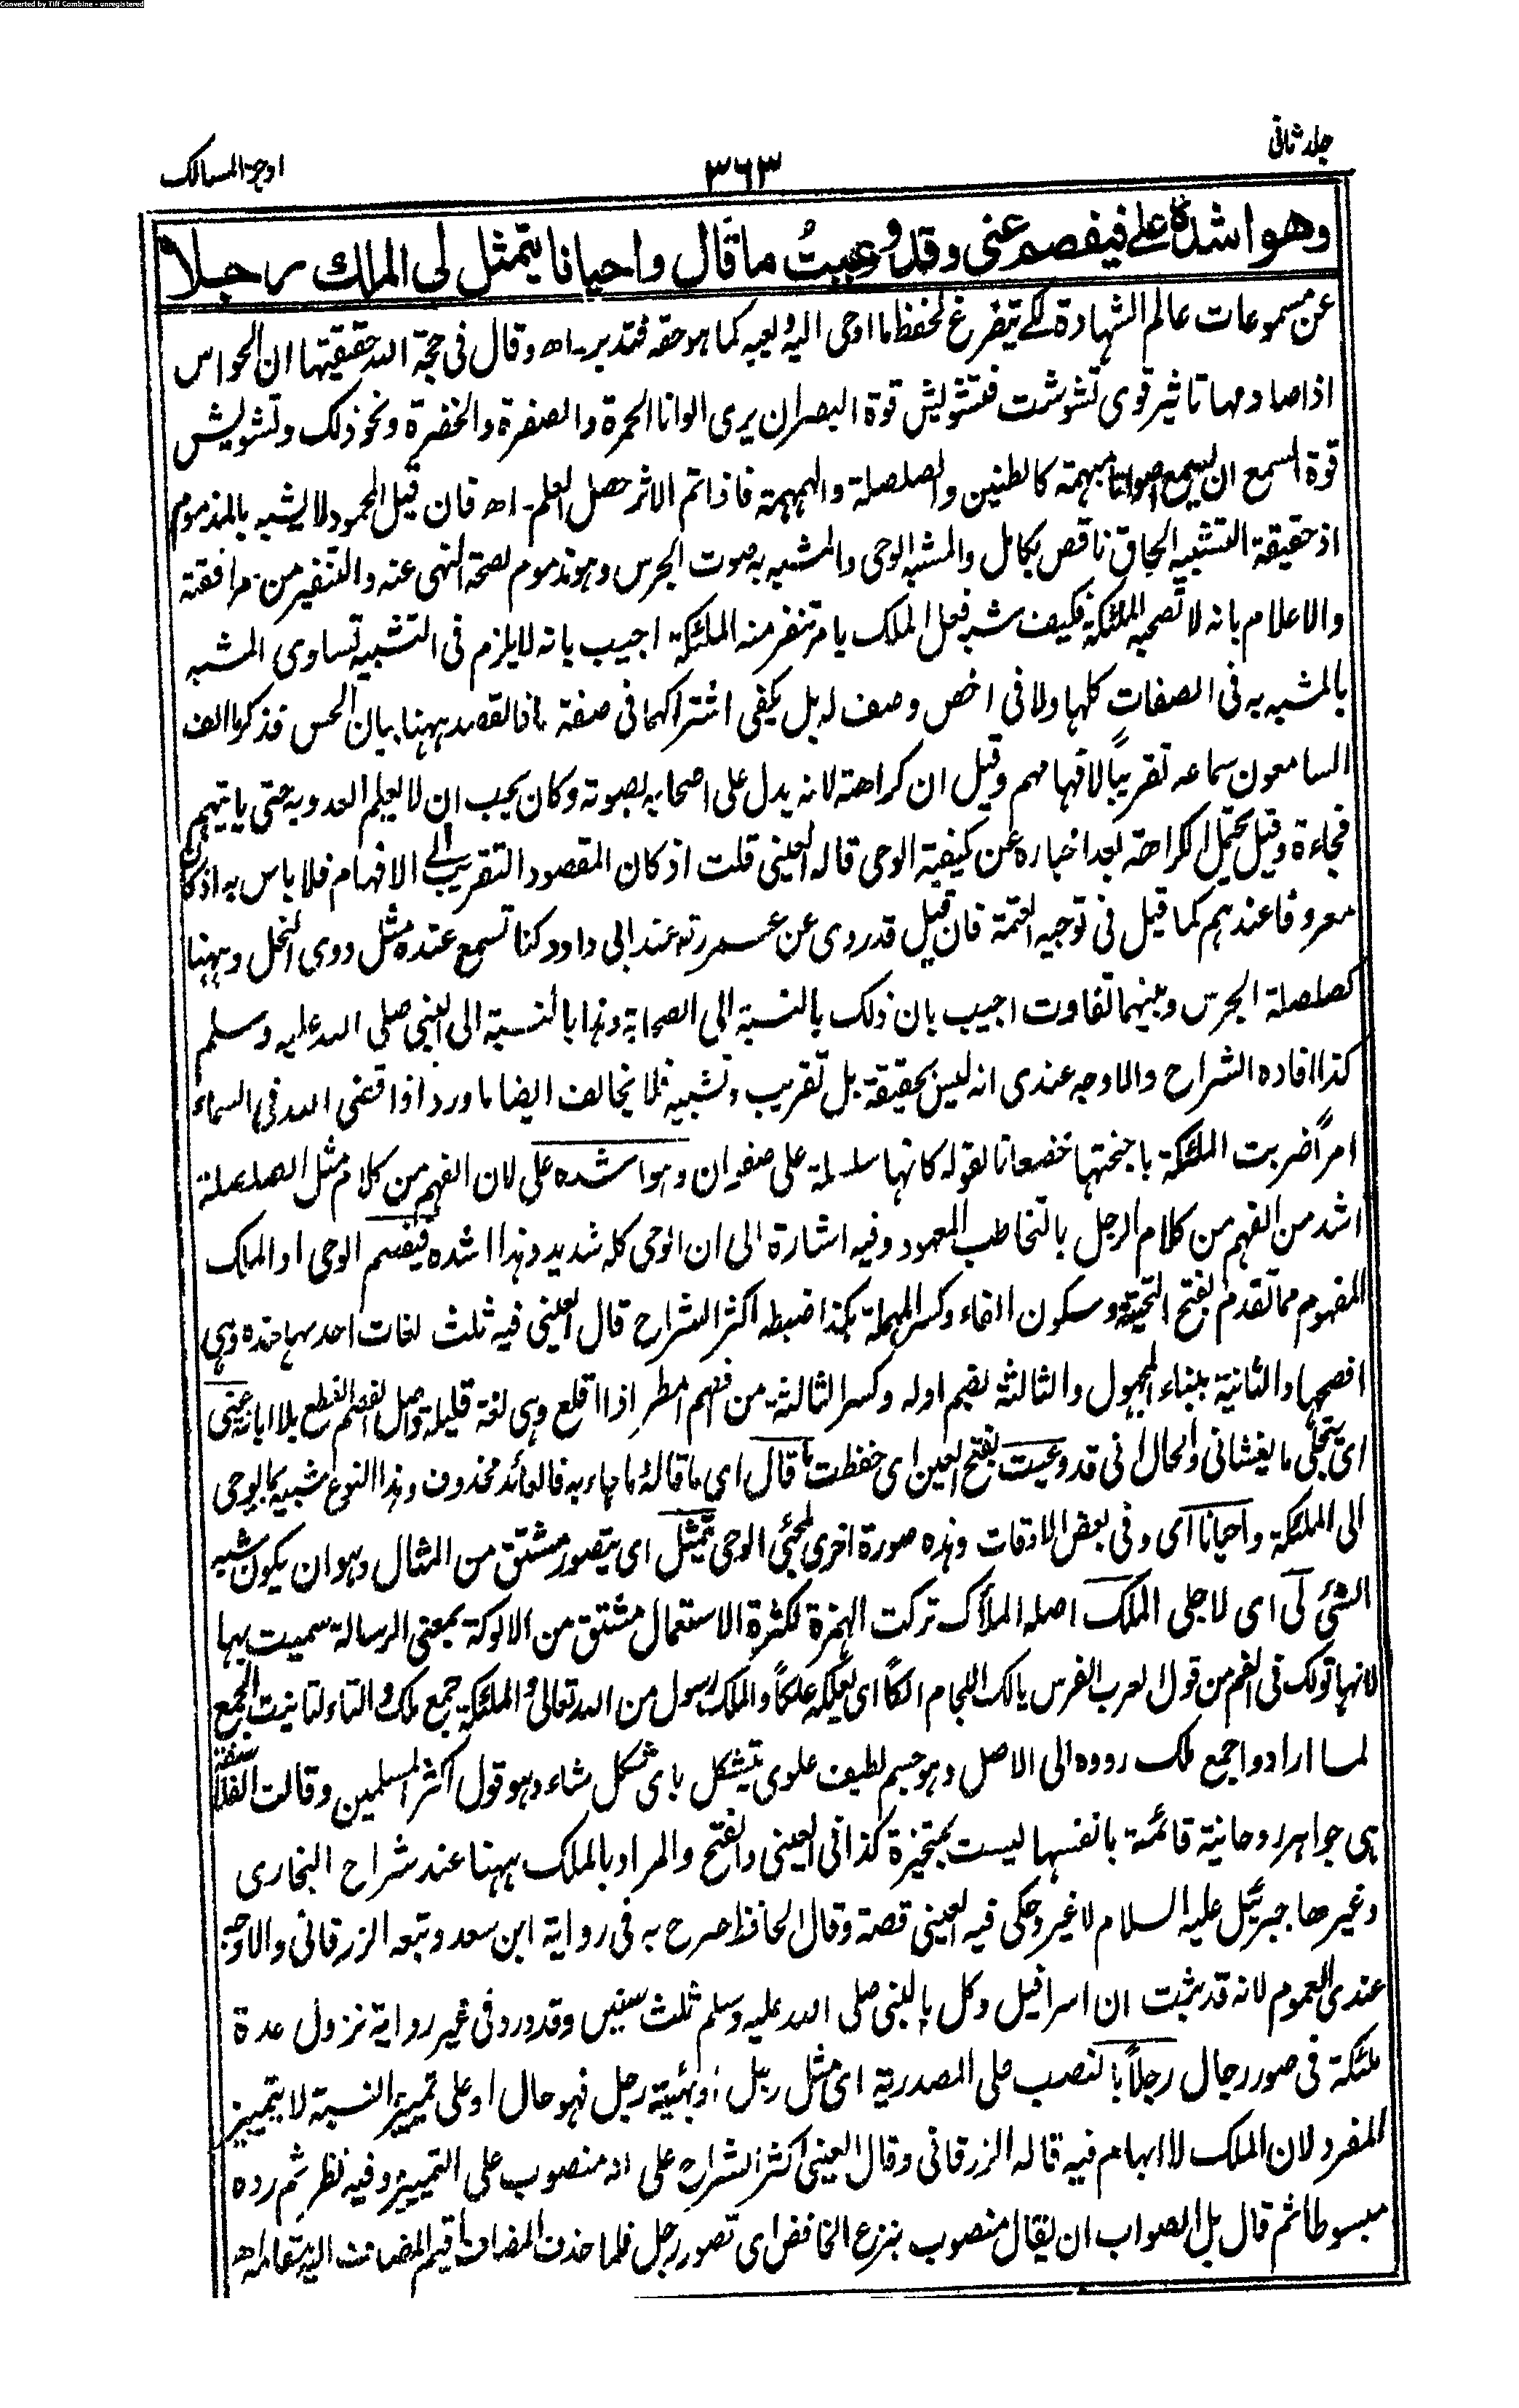 Converted by Tiff Combine - unregistered
جلد ثانی
۳۶۳
اوجز المسالک
وهو اشده علے فیفصم عنی وقد وعیتُ ما قال واحیانا یتمثل لی الملك رجلا
عن مسموعات عالم الشهادة لکے یتفرغ لحفظ ما اوحی الیه ولعیه کما هو حقه فتدبر۔ اھ وقال فی حجة الله حقیقتها ان الحواس
اذا صادمها تاثیر قوی تشوشت فتشویش قوة البصر ان یری الوانا الحمرة والصفرة والخضرة ونحو ذلک وتشویش
قوة السمع ان یسمع اصواتا مبهمة کالطنین والصلصلة والهمهمة فاذا تم الاثر حصل العلم۔ اھ فان قیل المحمود لا یشبه بالمذموم
اذ حقیقة التشبیه الحاق ناقص بکامل والمشبه الوحی والمشبه به صوت الجرس وهو مذموم لصحة النهی عنه والتنفیر من مرافقته
والاعلام بانه لا تصحبه الملئکة فکیف شبه فعل الملک بامر تنفر منه الملئکة اجیب بانه لا یلزم فی التشبیه تساوی المشبه
بالمشبه به فی الصفات کلها ولا فی اخص وصف له بل یکفی اشتراکهما فی صفة ما فالقصد ههنا بیان الحس فذکر ما الف
السامعون سماعه تقریباً لافهامهم وقیل ان کراهته لانه یدل علی اصحابه بصوته وکان یحب ان لا یعلم العدو به حتی یاتیهم
فجاءة وقیل یحتمل الکراهة بعد اخباره عن کیفیة الوحی قاله العینی قلت اذ کان المقصود التقریب الی الافهام فلا باس به اذ کان
معروفا عندهم کما قیل فی توجیه العتمة فان قیل قد روی عن عمر رضه عند ابی داود کنا نسمع عنده مثل دوی النحل وههنا
کصلصلة الجرس وبینهما تفاوت اجیب بان ذلک بالنسبة الی الصحابة وهذا بالنسبة الی النبی صلی الله علیه وسلم
کذا افاده الشراح والاوجه عندی انه لیس بحقیقة بل تقریب وتشبیه فلا یخالف ایضا ما ورد اذا قضی الله فی السماء
امراً ضربت الملئکة باجنحتها خضعانا لقوله کانها سلسلة علی صفوان وهو اشده علی لان الفهم من کلام مثل الصلصلة
اشد من الفهم من کلام الرجل بالتخاطب المعهود وفیه اشارة الی ان الوحی کله شدید وهذا اشده فیفصم الوحی او الملک
المفهوم مما تقدم بفتح التحیة وسکون الفاء وکسر المهملة هکذا ضبطه اکثر الشراح قال العینی فیه ثلث لغات احدها هذه وهی
افصحها والثانیة ببناء المجهول والثالثة بضم اوله وکسر الثالثة۔ من افصم المطر اذا اقلع وهی لغة قلیلة واصل الفصم القطع بلا ابانة عنی
ای یتجلی ما یغشانی والحال انی قد وعیت بفتح العین ای حفظت ما قال ای ما قاله ما جاء به فالعائد محذوف وهذا النوع شبیه بالوحی
الی الملئکة واحیانا ای وفی بعض الاوقات وهذه صورة اخری لمجئی الوحی یتمثل ای یتصور مشتق من المثال وهو ان یکون شبیه
الشئی لی ای لاجلی الملک اصله الملأک ترکت الهمزة لکثرة الاستعمال مشتق من الالوکة بمعنی الرسالة سمیت بها
لانها تولک فی الفم من قول العرب الفرس یالک اللجام الکاً ای یعلکه علکاً والملک رسول من الله تعالی والملئکة جمع ملک والتاء لتانیث الجمع
لما ارادوا جمع ملک ردوه الی الاصل وهو جسم لطیف علوی یتشکل بای شکل شاء وهو قول اکثر المسلمین وقالت الفلاسفة
هی جواهر روحانیة قائمة بانفسها لیست بمتحیزة کذا فی العینی والفتح والمراد بالملک ههنا عند شراح البخاری
وغیرها جبرئیل علیه السلام لا غیر وحکی فیه العینی قصة وقال الحافظ صرح به فی روایة ابن سعد وتبعه الزرقانی والاوجه
عندی العموم لانه قد ثبت ان اسرافیل وکل بالنبی صلی الله علیه وسلم ثلث سنین وقد ورد فی غیر روایة نزول عدة
ملئکة فی صور رجال رجلاً بالنصب علی المصدریة ای مثل رجل او بهئیة رجل فهو حال او علی تمییز النسبة لا بتمییز
المفرد لان الملک لا ابهام فیه قاله الزرقانی وقال العینی اکثر الشراح علی انه منصوب علی التمییز وفیه نظر ثم رده
مبسوطا ثم قال بل الصواب ان یقال منصوب بنزع الخافض ای تصور رجل فلما حذف المضاف اقیم المضاف الیه مقامه اھ